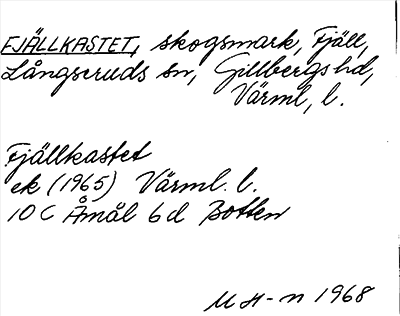 FJÄLLKASTET, skogsmark, Fjäll,
Långseruds sn, Gillbergs hd,
Värml, l.
Fjällkastet
ek (1965) Värml. l.
10 C Åmål 6 d Botten
M H-n 1968